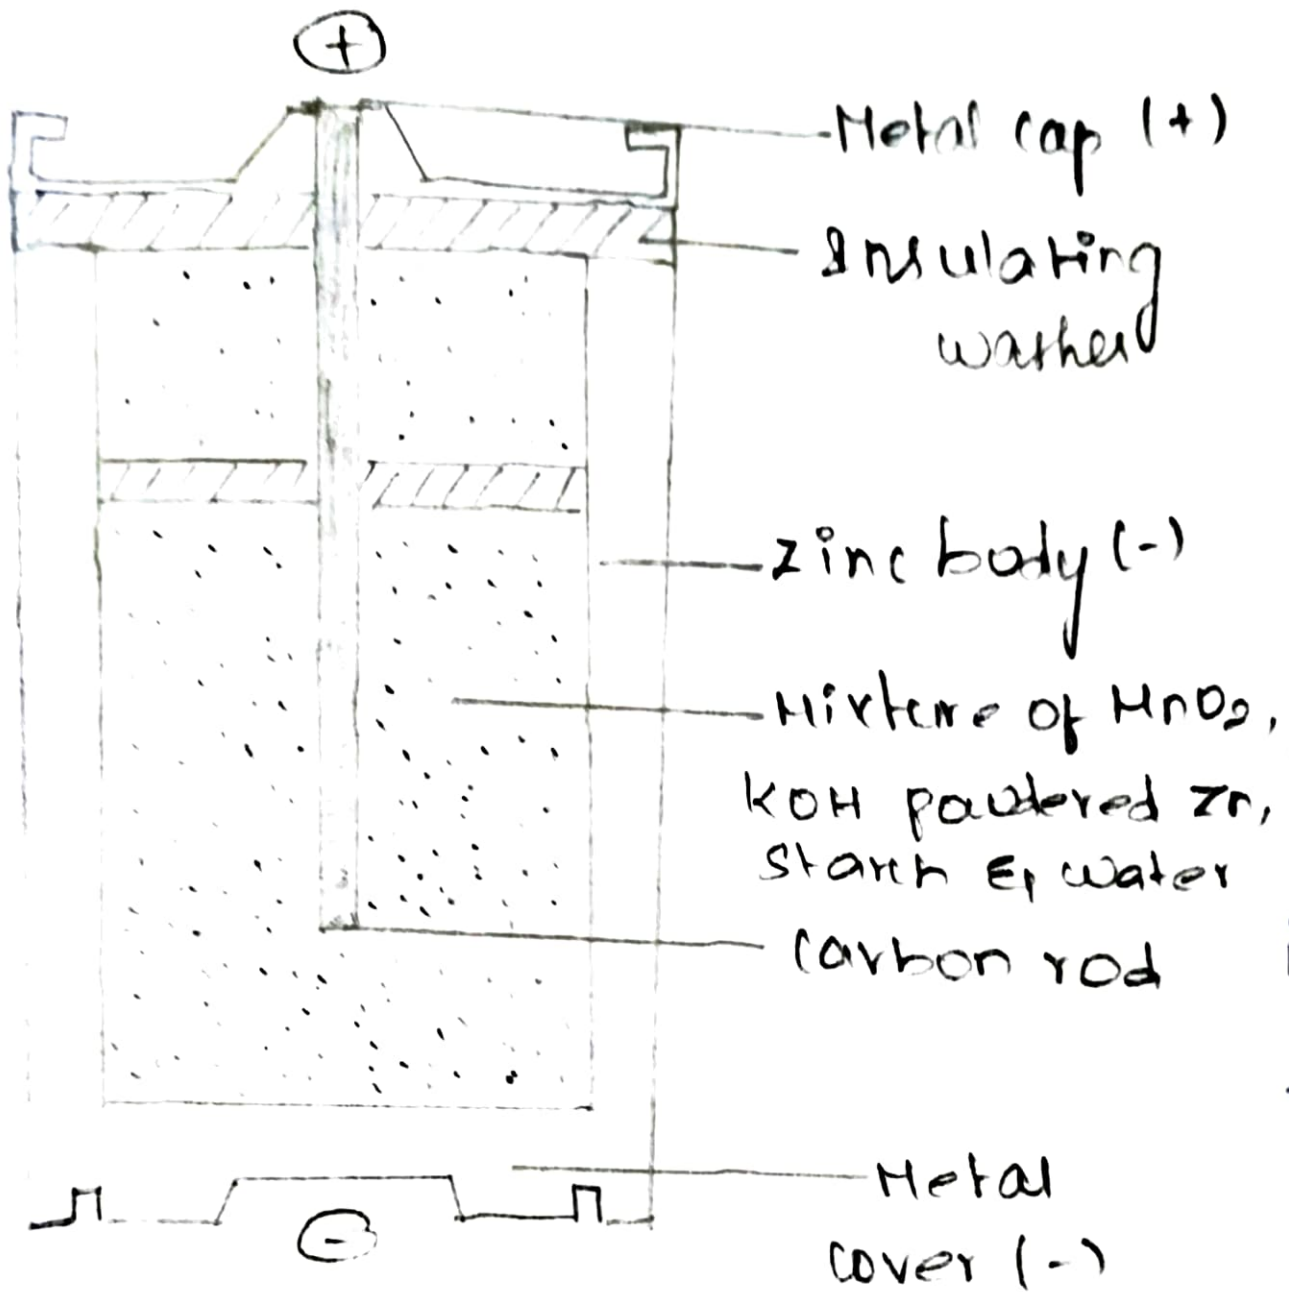 +
Metal cap (+)
Insulating
washer
Zinc body (-)
Mixture of MnO2,
KOH powdered Zn,
Starch & water
Carbon rod
Metal
cover (-)
-